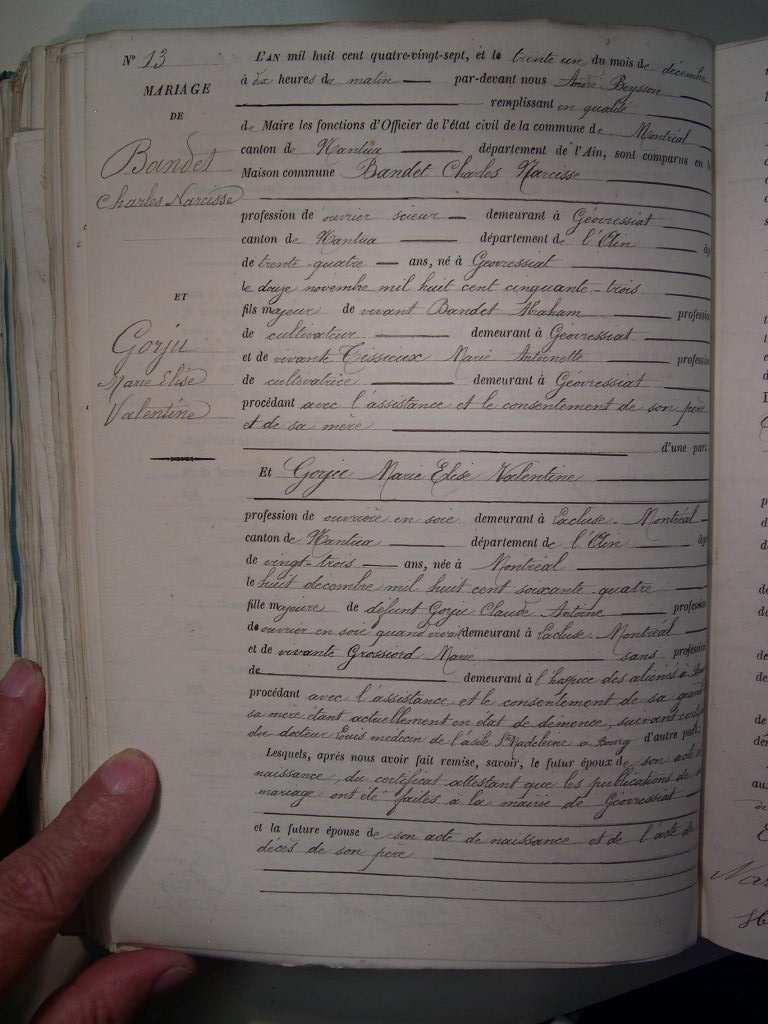 N° 13
MARIAGE
DE
Bandet
Charles Narcisse
ET
Gorju
Marie Elise
Valentine
L'AN mil huit cent quatre-vingt-sept, et le trente un du mois de décembre
à dix heures de matin par-devant nous André Beysson
remplissant en qualité
de Maire les fonctions d'Officier de l'état civil de la commune de Montréal
canton de Nantua département de l'Ain, sont comparus en la
Maison commune Bandet Charles Narcisse
profession de ouvrier scieur demeurant à Géovressiat
canton de Nantua département de l'Ain âgé
de trente-quatre ans, né à Géovressiat
le douze novembre mil huit cent cinquante-trois
fils majeur de vivant Bandet profession
de cultivateur demeurant à Géovressiat
et de vivante Tissieux Marie Antoinette profession
de cultivatrice demeurant à Géovressiat
procédant avec l'assistance et le consentement de son père
et de sa mère
d'une part
Et Gorju Marie Elise Valentine
profession de ouvrière en soie demeurant à Lacluse-Montréal
canton de Nantua département de l'Ain âgé
de vingt-trois ans, née à Montréal
le huit décembre mil huit cent soixante-quatre
fille majeure de défunt Gorju Claude Antoine profession
de ouvrier en soie quand vivait demeurant à Lacluse-Montréal
et de vivante Grossiord Marie sans profession
de demeurant à l'hospice des aliénés à
procédant avec l'assistance et le consentement de sa
sa mère étant actuellement en état de démence, suivant
du docteur médecin de l'asile Ste Madeleine à Bourg d'autre part.
Lesquels, après nous avoir fait remise, savoir, le futur époux de son acte
naissance, du certificat attestant que les publications de
mariage ont été faites à la mairie de Géovressiat
et la future épouse de son acte de naissance et de l'acte de
décès de son père